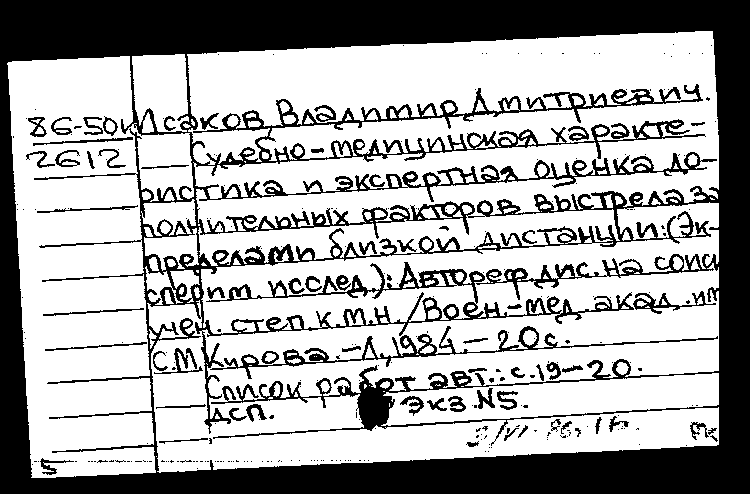 86-50к Исаков, Владимир Дмитриевич.
2612 Судебно-медицинская характе-
ристика и экспертная оценка до-
полнительных факторов выстрела за
пределами близкой дистанции: (Эк-
сперим. исслед.): Автореф. дис. на соиск
учен. степ. к.м.н. /Воен.-мед. акад. им
С.М. Кирова. -Л., 1984. - 20 с.
Список работ авт.: с. 19-20.
ДСП. Экз. №5.
5